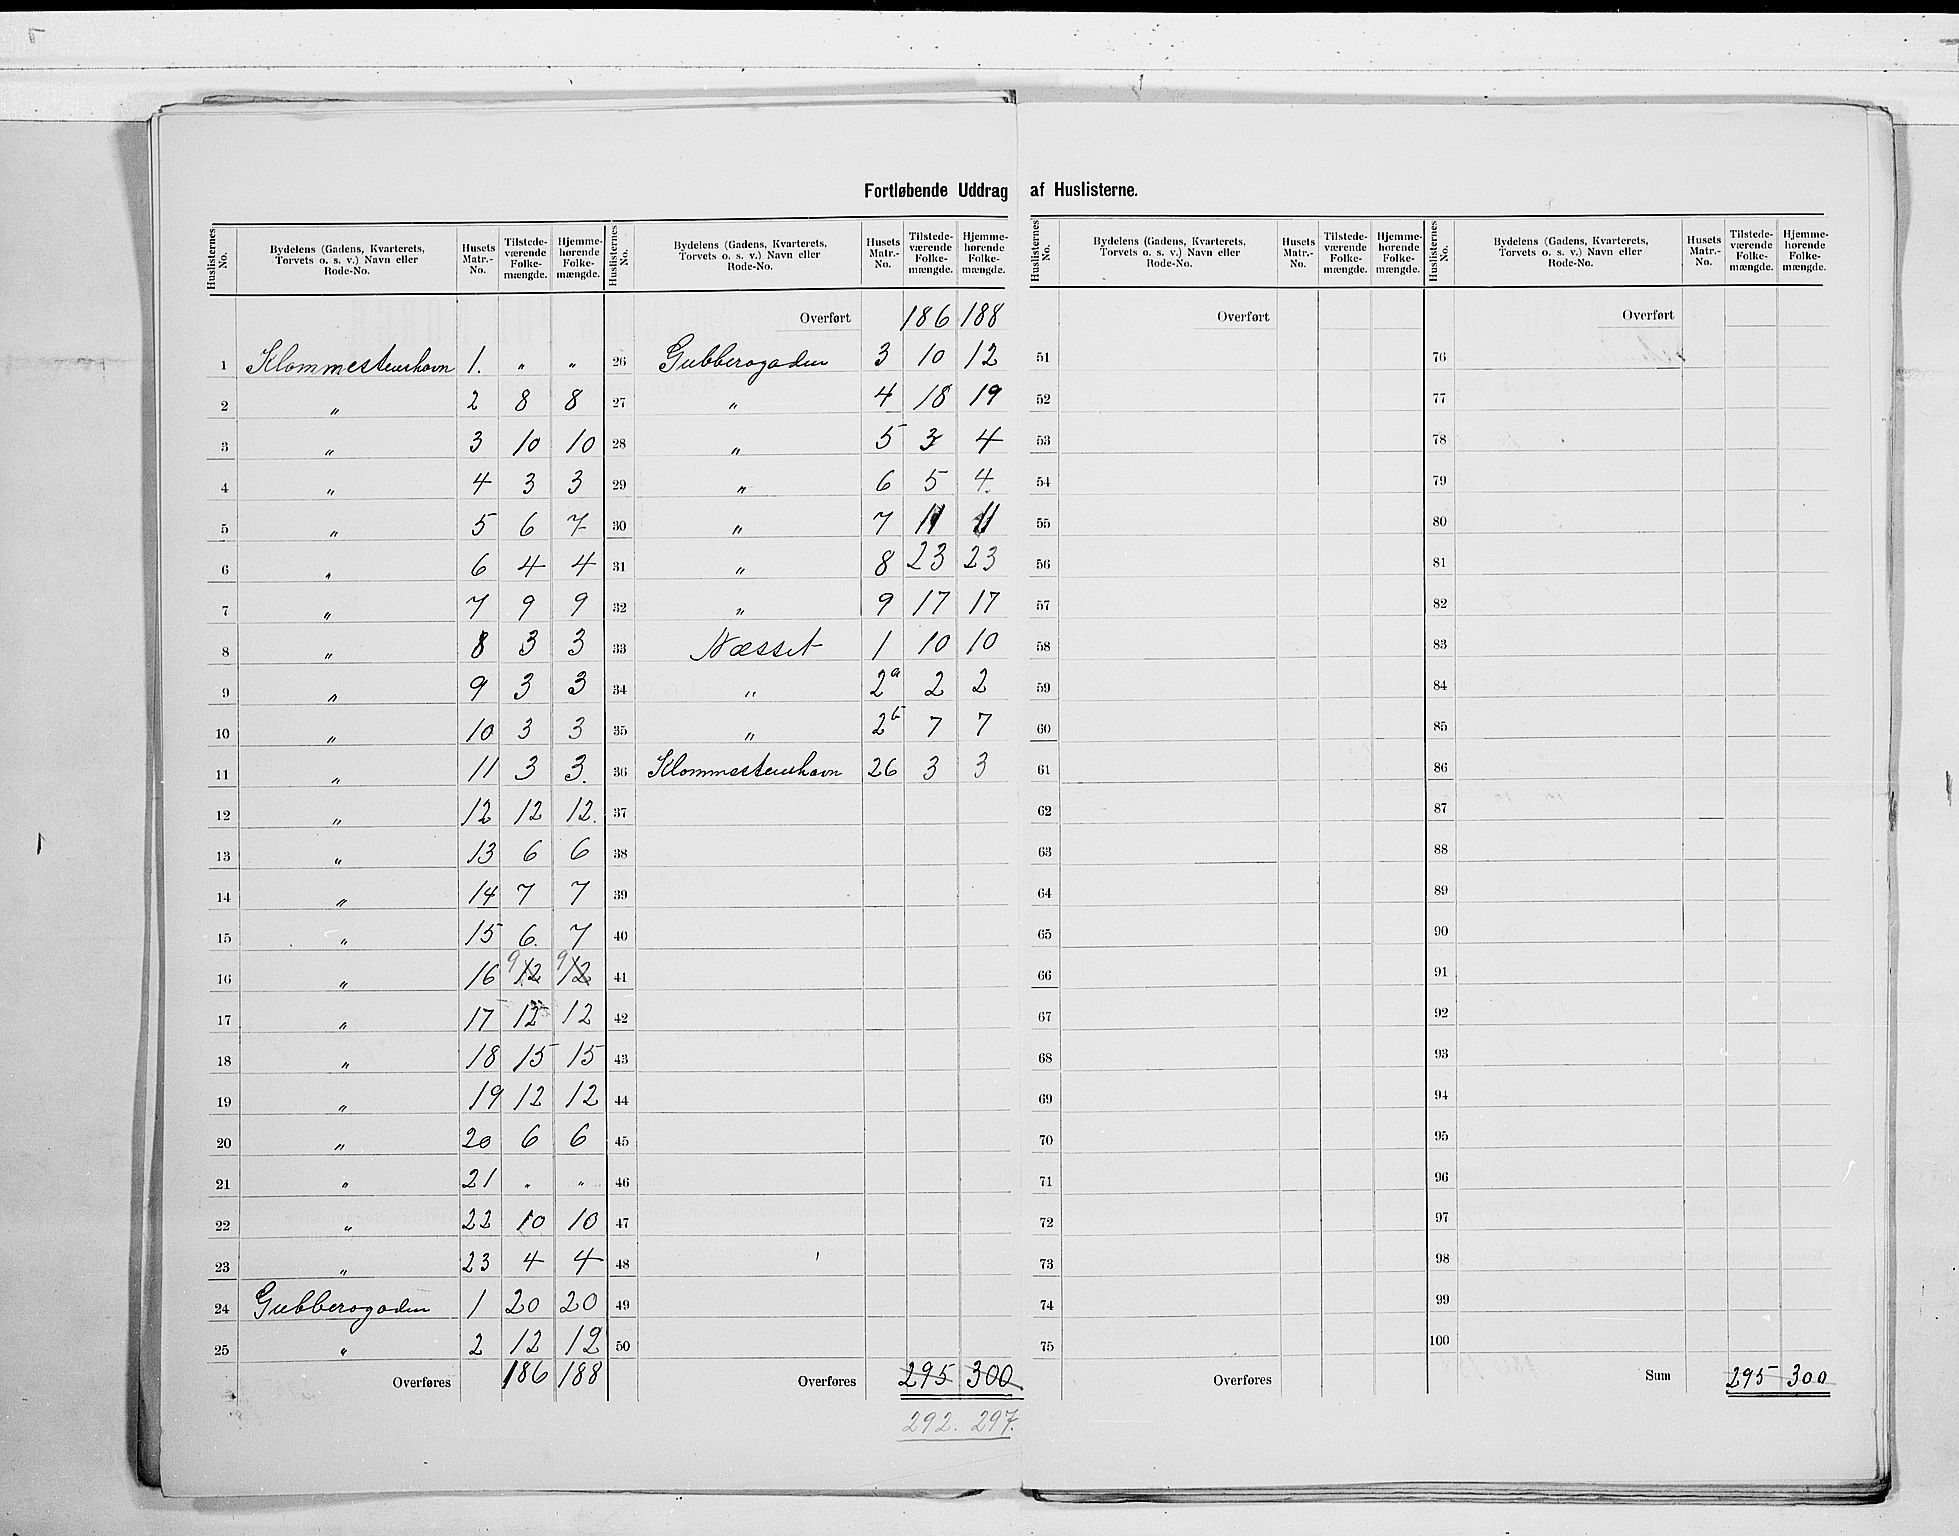 Fortløbende Uddrag af Huslisterne.
Huslisternes No. | Bydelens (Gadens, Kvarterets, Torvets o. s. v.) Navn eller Rode-No. | Husets Matr.-No. | Tilstede-værende Folke-mængde. | Hjemme-hørende Folke-mængde.
1 Klommestenshavn 1. " "
2 " 2 8 8
3 " 3 10 10
4 " 4 3 3
5 " 5 6 7
6 " 6 4 4
7 " 7 9 9
8 " 8 3 3
9 " 9 3 3
10 " 10 3 3
11 " 11 3 3.
12 " 12 12 12.
13 " 13 6 6
14 " 14 7 7
15 " 15 6. 7
16 " 16 9 12 9 12
17 " 17 12 12
18 " 18 15 15
19 " 19 12 12
20 " 20 6 6
21 " 21 " "
22 " 22 10 10
23 " 23 4 4
24 Gubberogaden 1 20 20
25 " 2 12 12
Overføres 186 188
Huslisternes No. | Bydelens (Gadens, Kvarterets, Torvets o. s. v.) Navn eller Rode-No. | Husets Matr.-No. | Tilstede-værende Folke-mængde. | Hjemme-hørende Folke-mængde.
Overført 186 188
26 Gubberogaden 3 10 12
27 " 4 18 19
28 " 5 3 4
29 " 6 5 4.
30 " 7 11 11
31 " 8 23 23
32 " 9 17 17
33 Næsset 1 10 10
34 " 2a 2 2
35 " 2b 7 7
36 Klommestenshavn 26 3 3
37
38
39
40
41
42
43
44
45
46
47
48
49
50
Overføres 295 300
292. 297.
Huslisternes No. | Bydelens (Gadens, Kvarterets, Torvets o. s. v.) Navn eller Rode-No. | Husets Matr.-No. | Tilstede-værende Folke-mængde. | Hjemme-hørende Folke-mængde.
Overført
51
52
53
54
55
56
57
58
59
60
61
62
63
64
65
66
67
68
69
70
71
72
73
74
75
Overføres
Huslisternes No. | Bydelens (Gadens, Kvarterets, Torvets o. s. v.) Navn eller Rode-No. | Husets Matr.-No. | Tilstede-værende Folke-mængde. | Hjemme-hørende Folke-mængde.
Overført
76
77
78
79
80
81
82
83
84
85
86
87
88
89
90
91
92
93
94
95
96
97
98
99
100
Sum 295 300